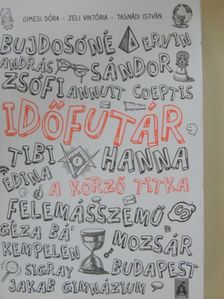 GIMESI DÓRA - JELI VIKTÓRIA - TASNÁDI ISTVÁN
BUJDOSÓNÉ ERVIN
ANDRÁS SÁNDOR
ZSÓFI ANNUIT COEPTIS
IDŐFUTÁR
TIBI HANNA
EDINA
A KÖRZŐ TITKA
FÉLEMÁSSZEMŰ
GÉZA BÁ' MOZSÁR
KEMPELEN
SIGRAY BUDAPEST
JAKAB GIMNÁZIUM